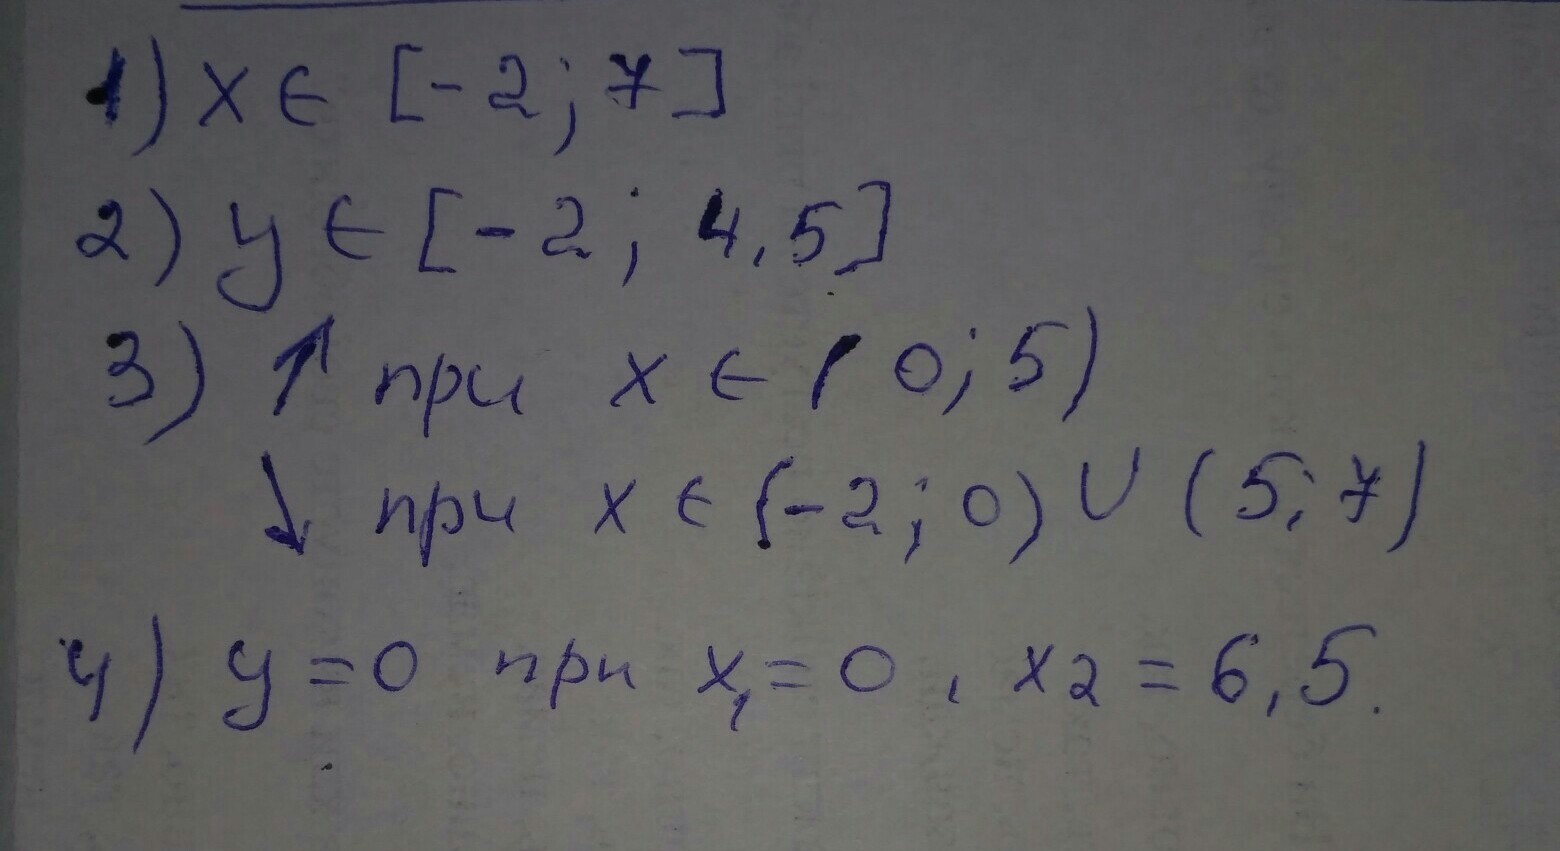 1) x ∈ [-2; 7]
2) y ∈ [-2; 4,5]
3) ↑ при x ∈ (0; 5)
↓ при x ∈ (-2; 0) ∪ (5; 7)
4) y = 0 при x₁ = 0, x2 = 6,5.